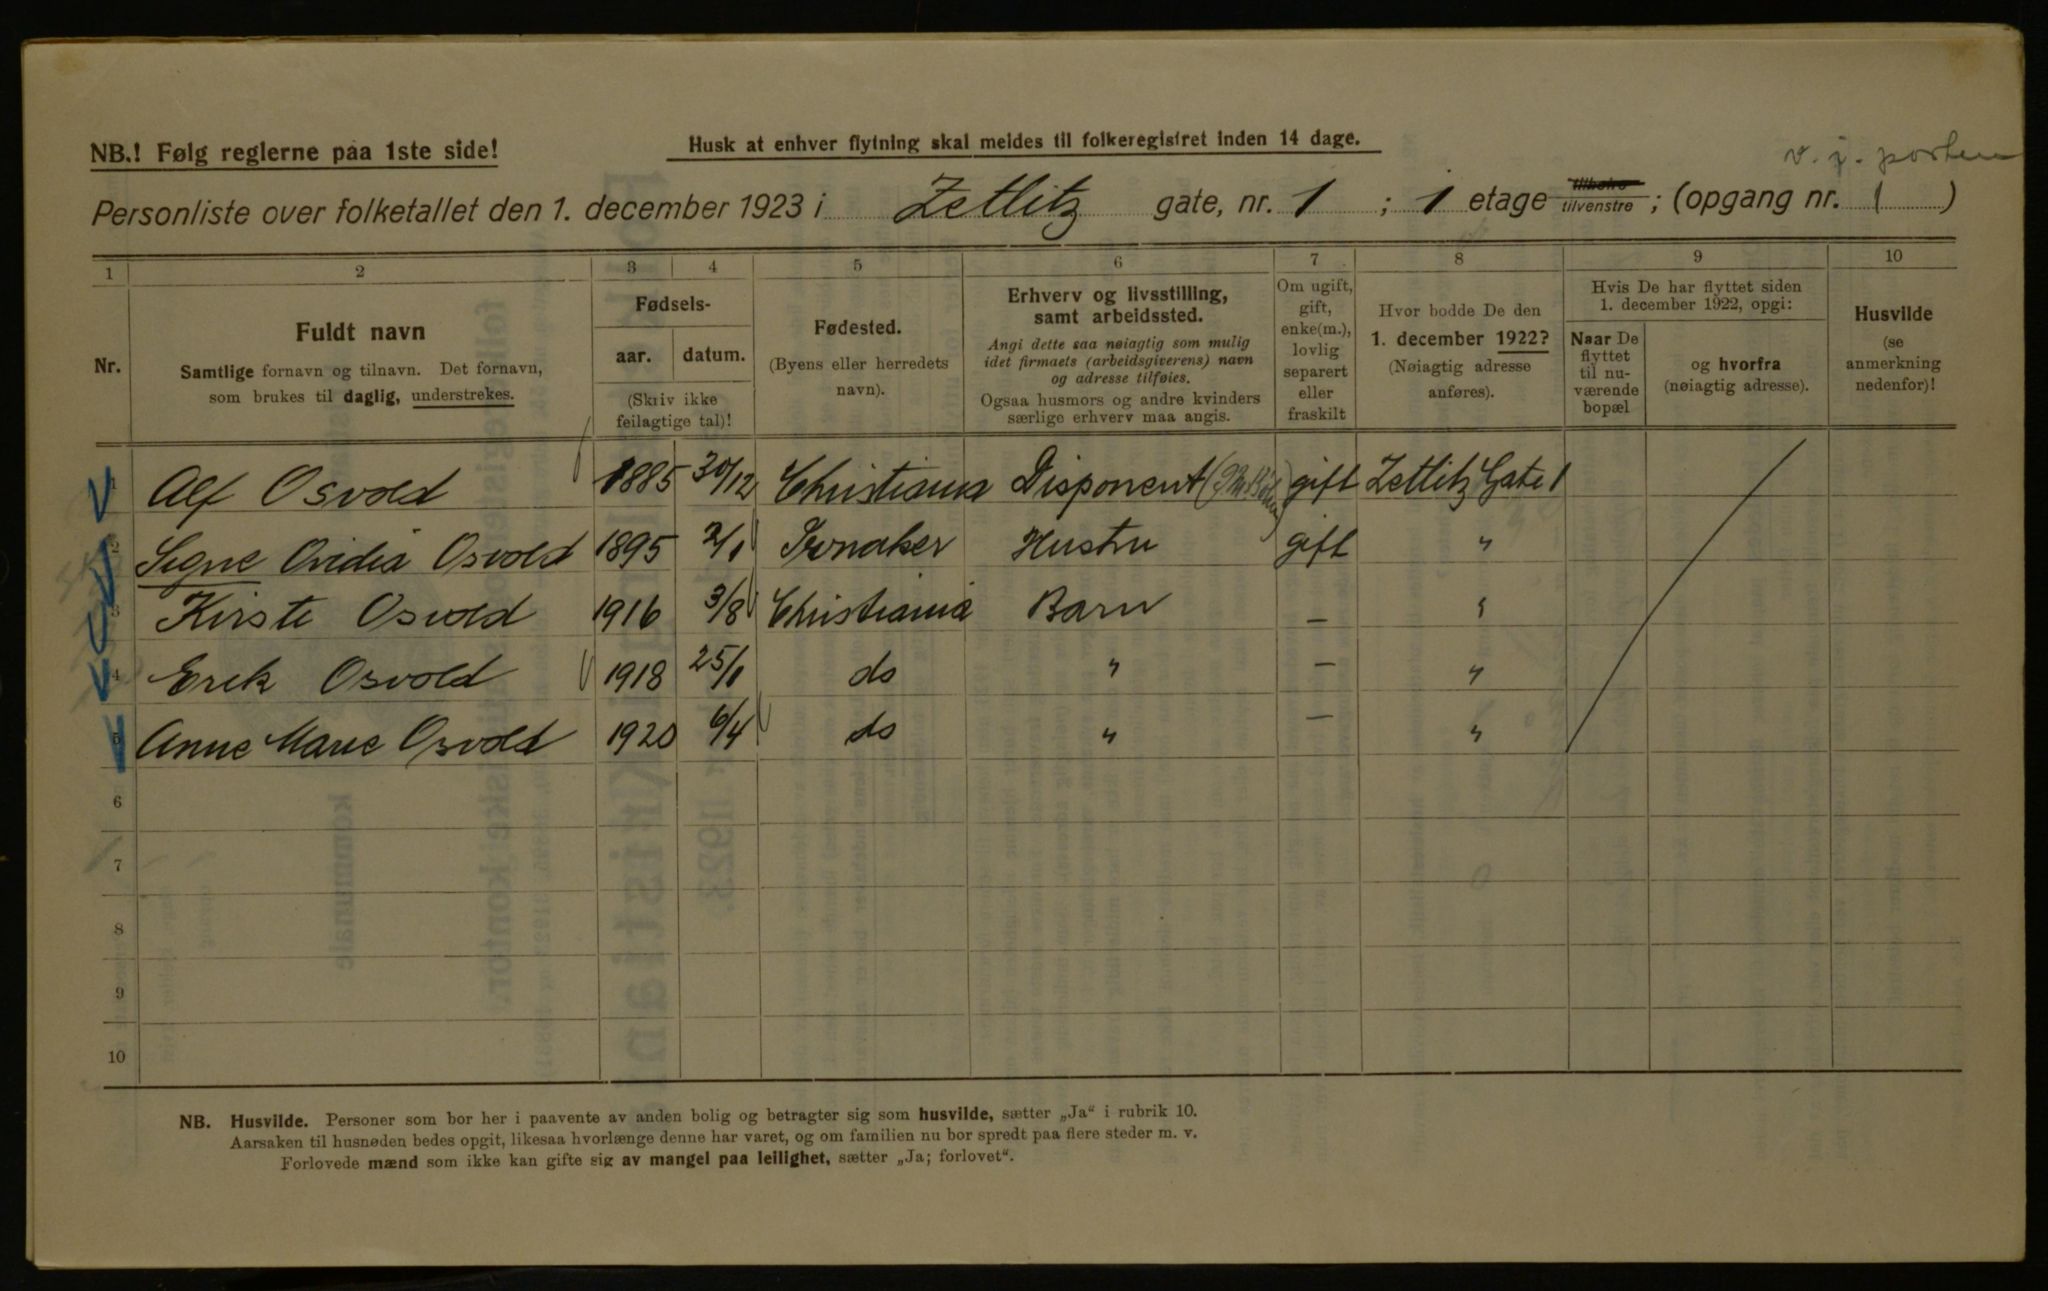 NB.! Følg reglerne paa 1ste side!
Husk at enhver flytning skal meldes til folkeregistret inden 14 dage.
v. i. porten
Personliste over folketallet den 1. december 1923 i Zetlitz gate, nr. 1 ; 1 etage tilhøire tilvenstre ; (opgang nr. 1 )
1 2 3 4 5 6 7 8 9 10
Nr.
Fuldt navn
Samtlige fornavn og tilnavn. Det fornavn,
som brukes til daglig, understrekes.
Fødsels-
aar. datum.
(Skriv ikke
feilagtige tal)!
Fødested.
(Byens eller herredets
navn).
Erhverv og livsstilling,
samt arbeidssted.
Angi dette saa nøiagtig som mulig
idet firmaets (arbeidsgiverens) navn
og adresse tilføies.
Ogsaa husmors og andre kvinders
særlige erhverv maa angis.
Om ugift,
gift,
enke(m.),
lovlig
separert
eller
fraskilt
Hvor bodde De den
1. december 1922?
(Nøiagtig adresse
anføres).
Hvis De har flyttet siden
1. december 1922, opgi:
Naar De
flyttet
til nu-
værende
bopæl
og hvorfra
(nøiagtig adresse).
Husvilde
(se
anmerkning
nedenfor)!
1 Alf Osvold 1885 30/12 Christiania Disponent gift Zetlitz Gate 1
2 Signe Ovidia Osvold 1895 2/1 Hustru gift "
3 Kirste Osvold 1916 3/8 Christiania Barn — "
4 Erik Osvold 1918 25/1 do " — "
5 Anne Marie Osvold 1920 6/4 do " — "
6
7
8
9
10
NB. Husvilde. Personer som bor her i paavente av anden bolig og betragter sig som husvilde, sætter „Ja“ i rubrik 10.
Aarsaken til husnøden bedes opgit, likesaa hvorlænge denne har varet, og om familien nu bor spredt paa flere steder m. v.
Forlovede mænd som ikke kan gifte sig av mangel paa leilighet, sætter „Ja; forlovet“.